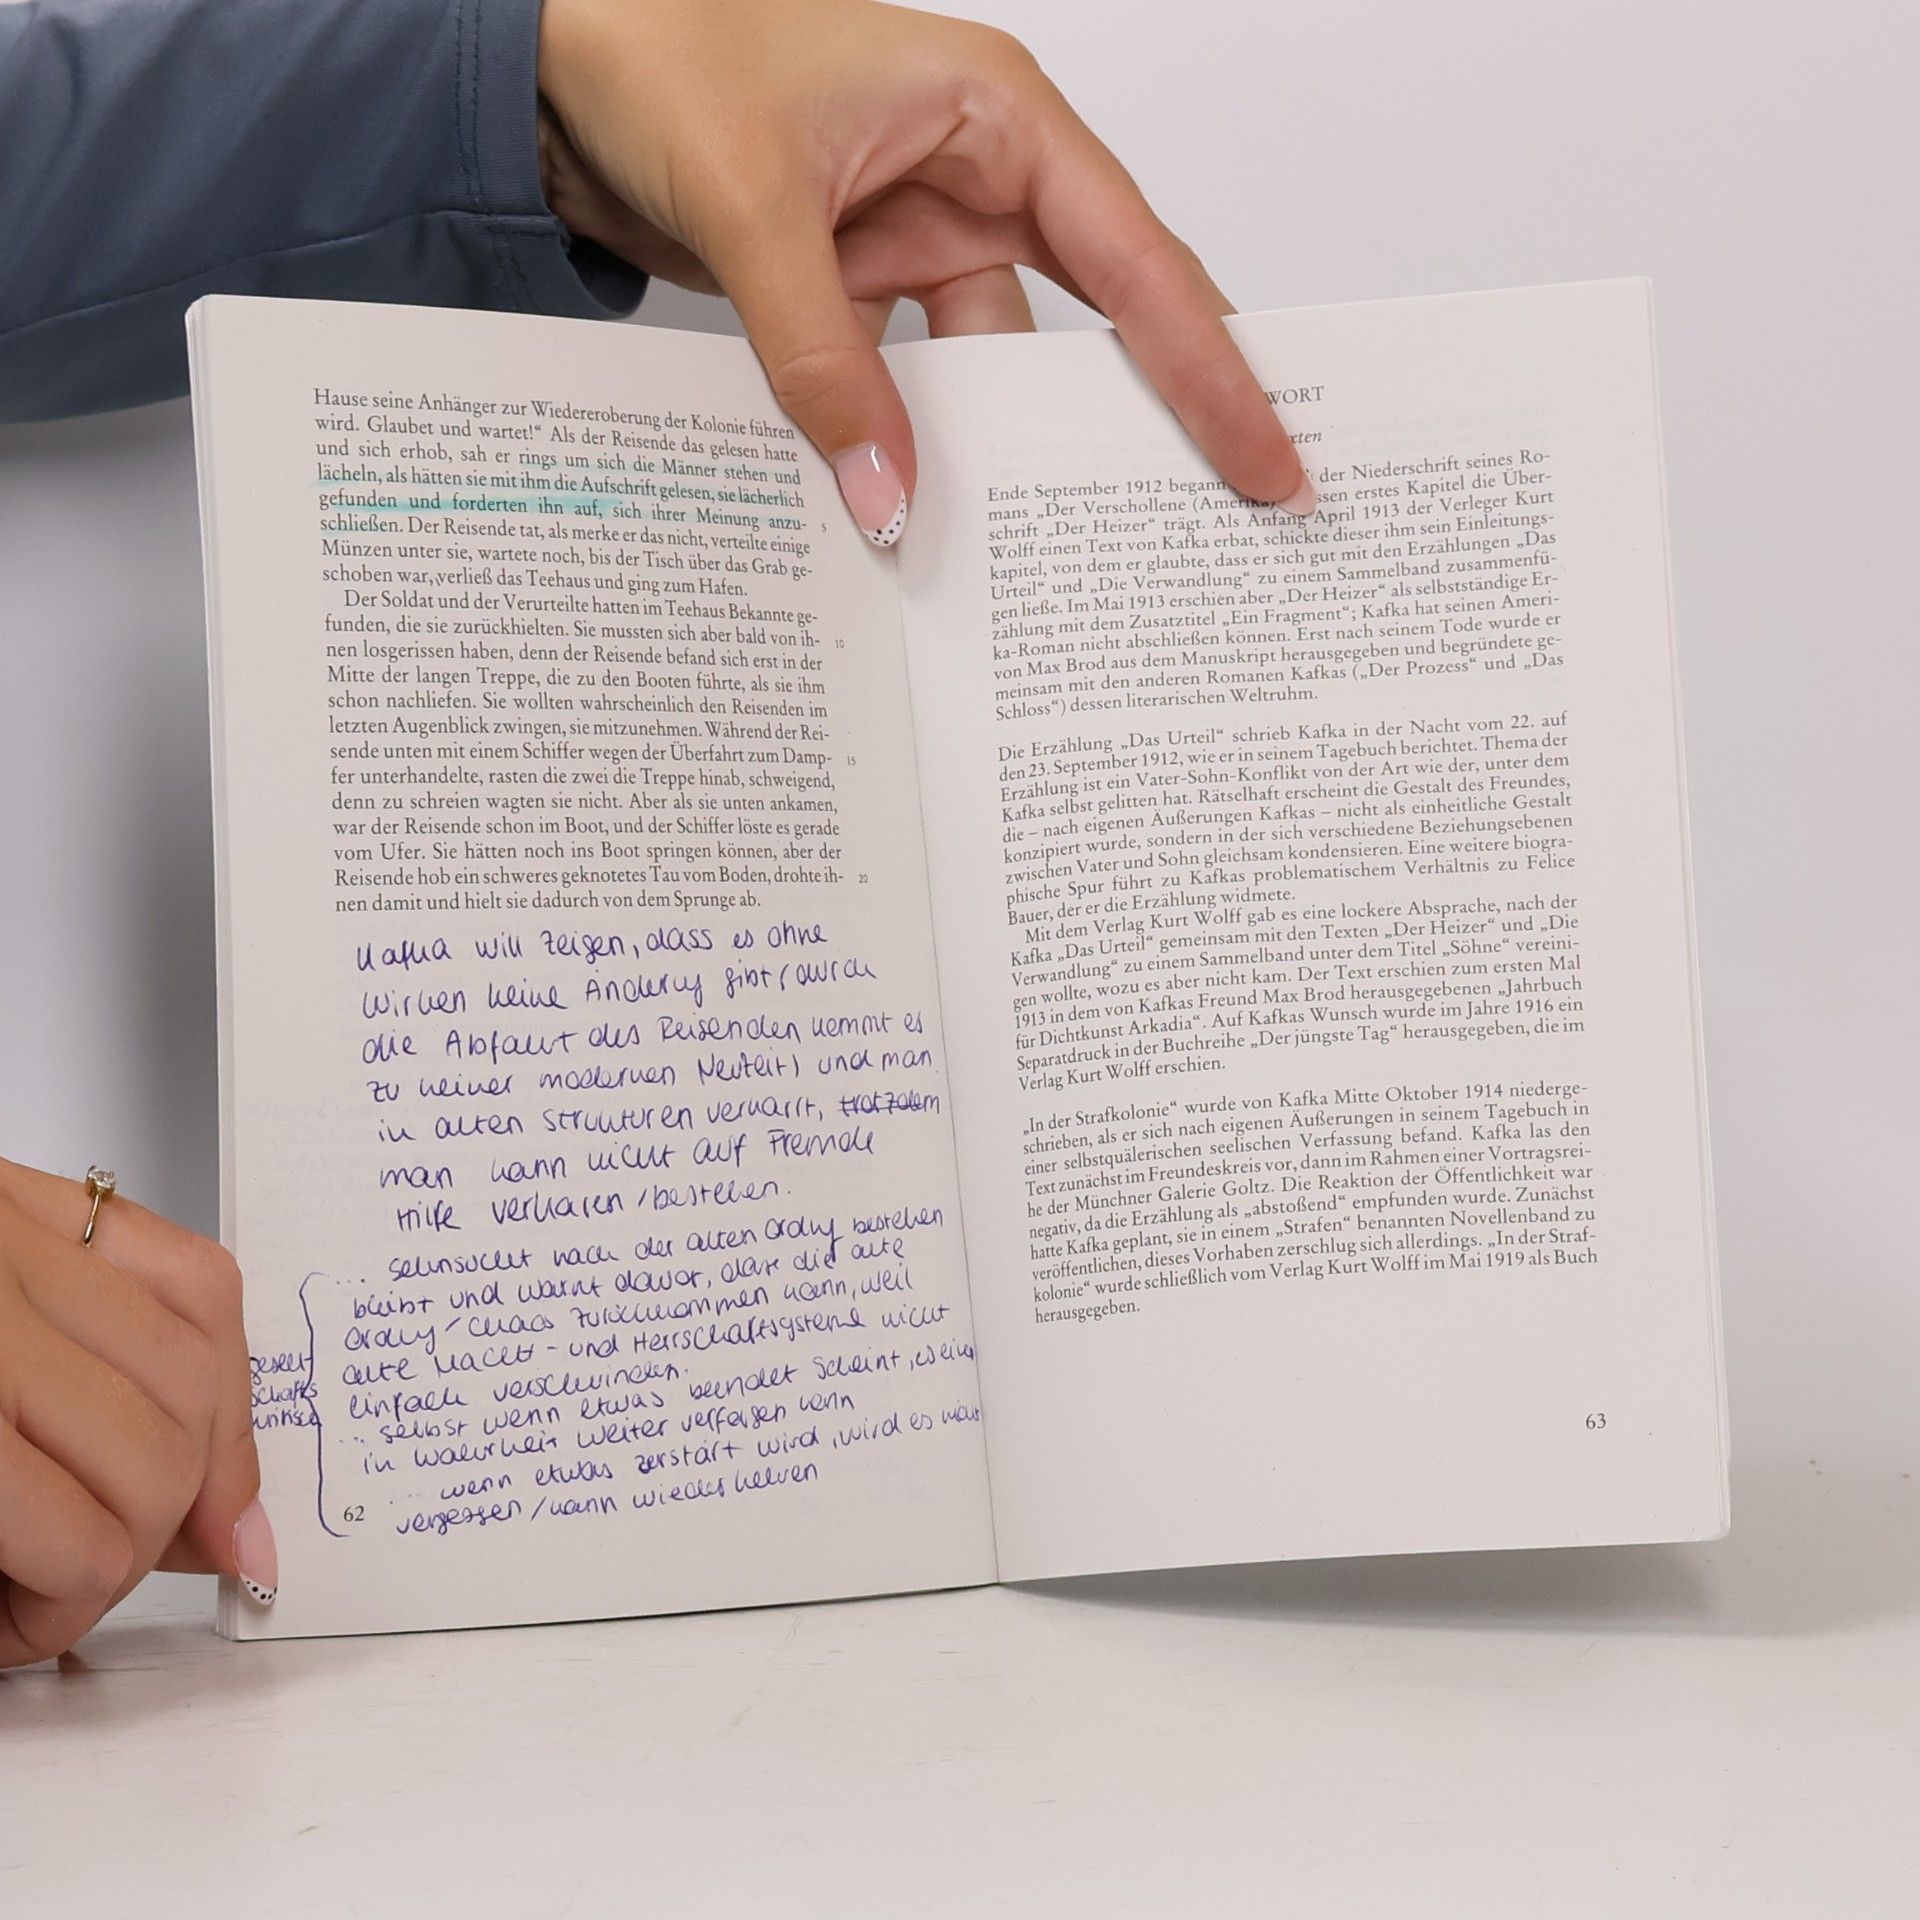 Hause seine Anhänger zur Wiedereroberung der Kolonie führen
wird. Glaubet und wartet!“ Als der Reisende das gelesen hatte
und sich erhob, sah er rings um sich die Männer stehen und
lächeln, als hätten sie mit ihm die Aufschrift gelesen, sie lächerlich
gefunden und forderten ihn auf, sich ihrer Meinung anzu- 5
schließen. Der Reisende tat, als merke er das nicht, verteilte einige
Münzen unter sie, wartete noch, bis der Tisch über das Grab ge-
schoben war, verließ das Teehaus und ging zum Hafen.
Der Soldat und der Verurteilte hatten im Teehaus Bekannte ge-
funden, die sie zurückhielten. Sie mussten sich aber bald von ih- 10
nen losgerissen haben, denn der Reisende befand sich erst in der
Mitte der langen Treppe, die zu den Booten führte, als sie ihm
schon nachliefen. Sie wollten wahrscheinlich den Reisenden im
letzten Augenblick zwingen, sie mitzunehmen. Während der Rei-
sende unten mit einem Schiffer wegen der Überfahrt zum Damp- 15
fer unterhandelte, rasten die zwei die Treppe hinab, schweigend,
denn zu schreien wagten sie nicht. Aber als sie unten ankamen,
war der Reisende schon im Boot, und der Schiffer löste es gerade
vom Ufer. Sie hätten noch ins Boot springen können, aber der
Reisende hob ein schweres geknotetes Tau vom Boden, drohte ih- 20
nen damit und hielt sie dadurch von dem Sprunge ab.
Kafka will zeigen, dass es ohne
Wirken keine Änderung gibt (durch
die Abfahrt des Reisenden kommt es
zu keiner modernen Neuzeit) und man
in alten Strukturen verharrt, trotzdem
man kann nicht auf Fremde
Hilfe verharen / bestehen.
... Sehnsucht nach der alten Ordng bestehen
bleibt und warnt davor, dass die alte
Ordng / Chaos zurückkommen kann, weil
alte Macht- und Herrschaftsysteme nicht
einfach verschwinden.
... selbst wenn etwas beendet scheint, es einen
in Wahrheit weiter verfolgen kann
... wenn etwas zerstört wird, wird es nicht
vergessen / kann wiederkehren
gesell-
schafts
kritisch
62
WORT
Ende September 1912 begann der Niederschrift seines Ro-
mans „Der Verschollene (Amerika) erstes Kapitel die Über-
schrift „Der Heizer“ trägt. Als Anfang April 1913 der Verleger Kurt
Wolff einen Text von Kafka erbat, schickte dieser ihm sein Einleitungs-
kapitel, von dem er glaubte, dass er sich gut mit den Erzählungen „Das
Urteil“ und „Die Verwandlung“ zu einem Sammelband zusammenfü-
gen ließe. Im Mai 1913 erschien aber „Der Heizer“ als selbstständige Er-
zählung mit dem Zusatztitel „Ein Fragment“; Kafka hat seinen Ameri-
ka-Roman nicht abschließen können. Erst nach seinem Tode wurde er
von Max Brod aus dem Manuskript herausgegeben und begründete ge-
meinsam mit den anderen Romanen Kafkas („Der Prozess“ und „Das
Schloss“) dessen literarischen Weltruhm.
Die Erzählung „Das Urteil“ schrieb Kafka in der Nacht vom 22. auf
den 23. September 1912, wie er in seinem Tagebuch berichtet. Thema der
Erzählung ist ein Vater-Sohn-Konflikt von der Art wie der, unter dem
Kafka selbst gelitten hat. Rätselhaft erscheint die Gestalt des Freundes,
die – nach eigenen Äußerungen Kafkas – nicht als einheitliche Gestalt
konzipiert wurde, sondern in der sich verschiedene Beziehungsebenen
zwischen Vater und Sohn gleichsam kondensieren. Eine weitere biogra-
phische Spur führt zu Kafkas problematischem Verhältnis zu Felice
Bauer, der er die Erzählung widmete.
Mit dem Verlag Kurt Wolff gab es eine lockere Absprache, nach der
Kafka „Das Urteil“ gemeinsam mit den Texten „Der Heizer“ und „Die
Verwandlung“ zu einem Sammelband unter dem Titel „Söhne“ vereini-
gen wollte, wozu es aber nicht kam. Der Text erschien zum ersten Mal
1913 in dem von Kafkas Freund Max Brod herausgegebenen „Jahrbuch
für Dichtkunst Arkadia“. Auf Kafkas Wunsch wurde im Jahre 1916 ein
Separatdruck in der Buchreihe „Der jüngste Tag“ herausgegeben, die im
Verlag Kurt Wolff erschien.
„In der Strafkolonie“ wurde von Kafka Mitte Oktober 1914 niederge-
schrieben, als er sich nach eigenen Äußerungen in seinem Tagebuch in
einer selbstquälerischen seelischen Verfassung befand. Kafka las den
Text zunächst im Freundeskreis vor, dann im Rahmen einer Vortragsrei-
he der Münchner Galerie Goltz. Die Reaktion der Öffentlichkeit war
negativ, da die Erzählung als „abstoßend“ empfunden wurde. Zunächst
hatte Kafka geplant, sie in einem „Strafen“ benannten Novellenband zu
veröffentlichen, dieses Vorhaben zerschlug sich allerdings. „In der Straf-
kolonie“ wurde schließlich vom Verlag Kurt Wolff im Mai 1919 als Buch
herausgegeben.
63